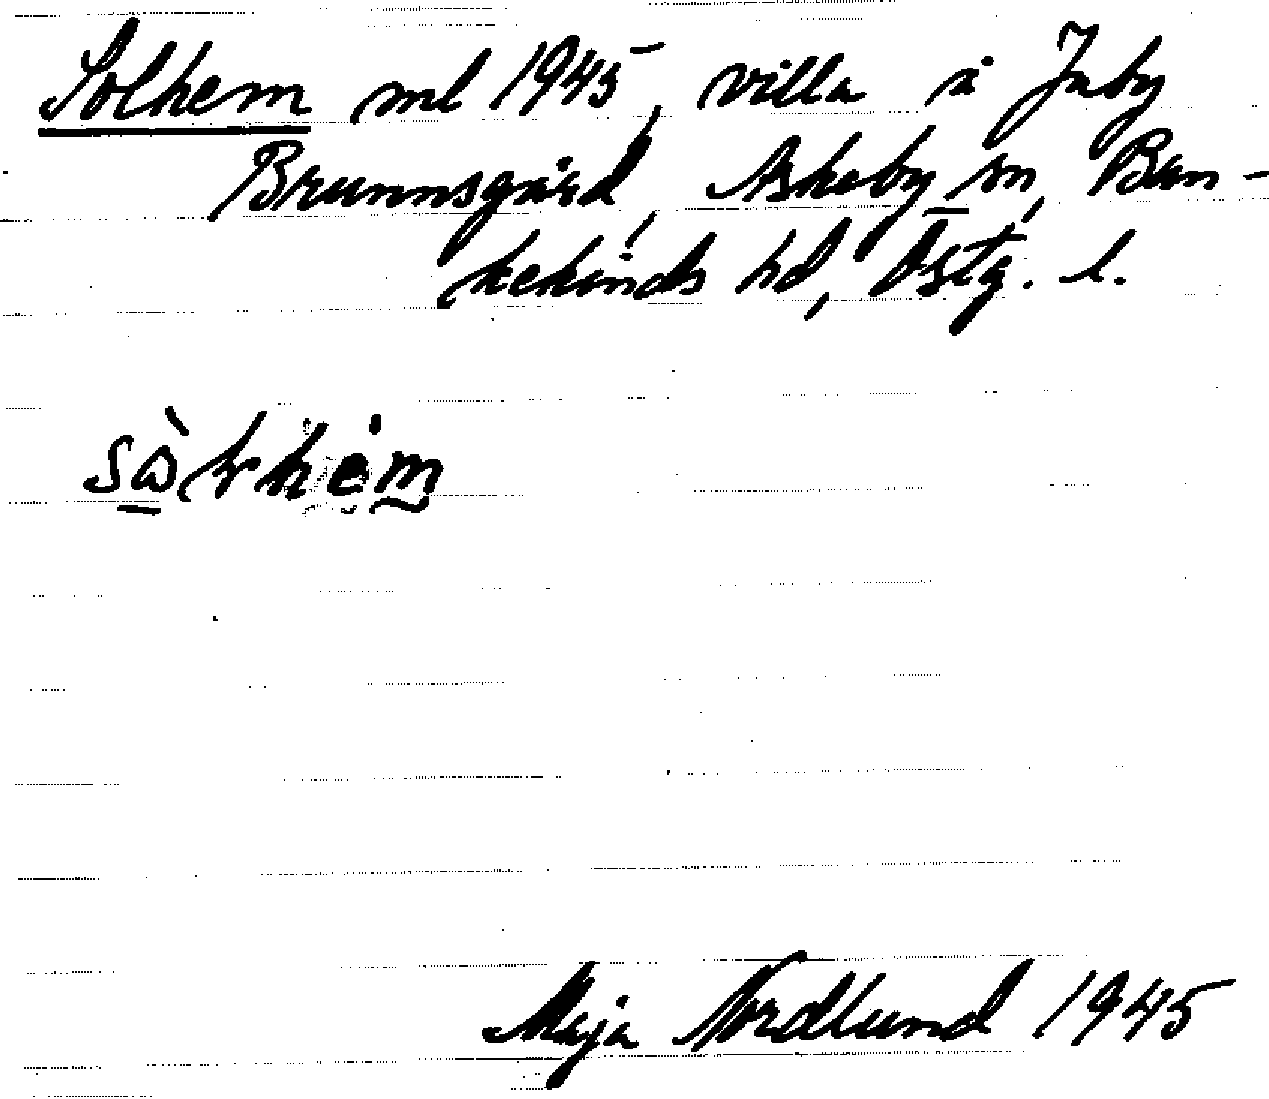 Solhem ml 1945, villa å Jnby
Brunnsgård, Askeby sn, Ban-
kekinds hd, Östg. l.
Maja Nordlund 1945